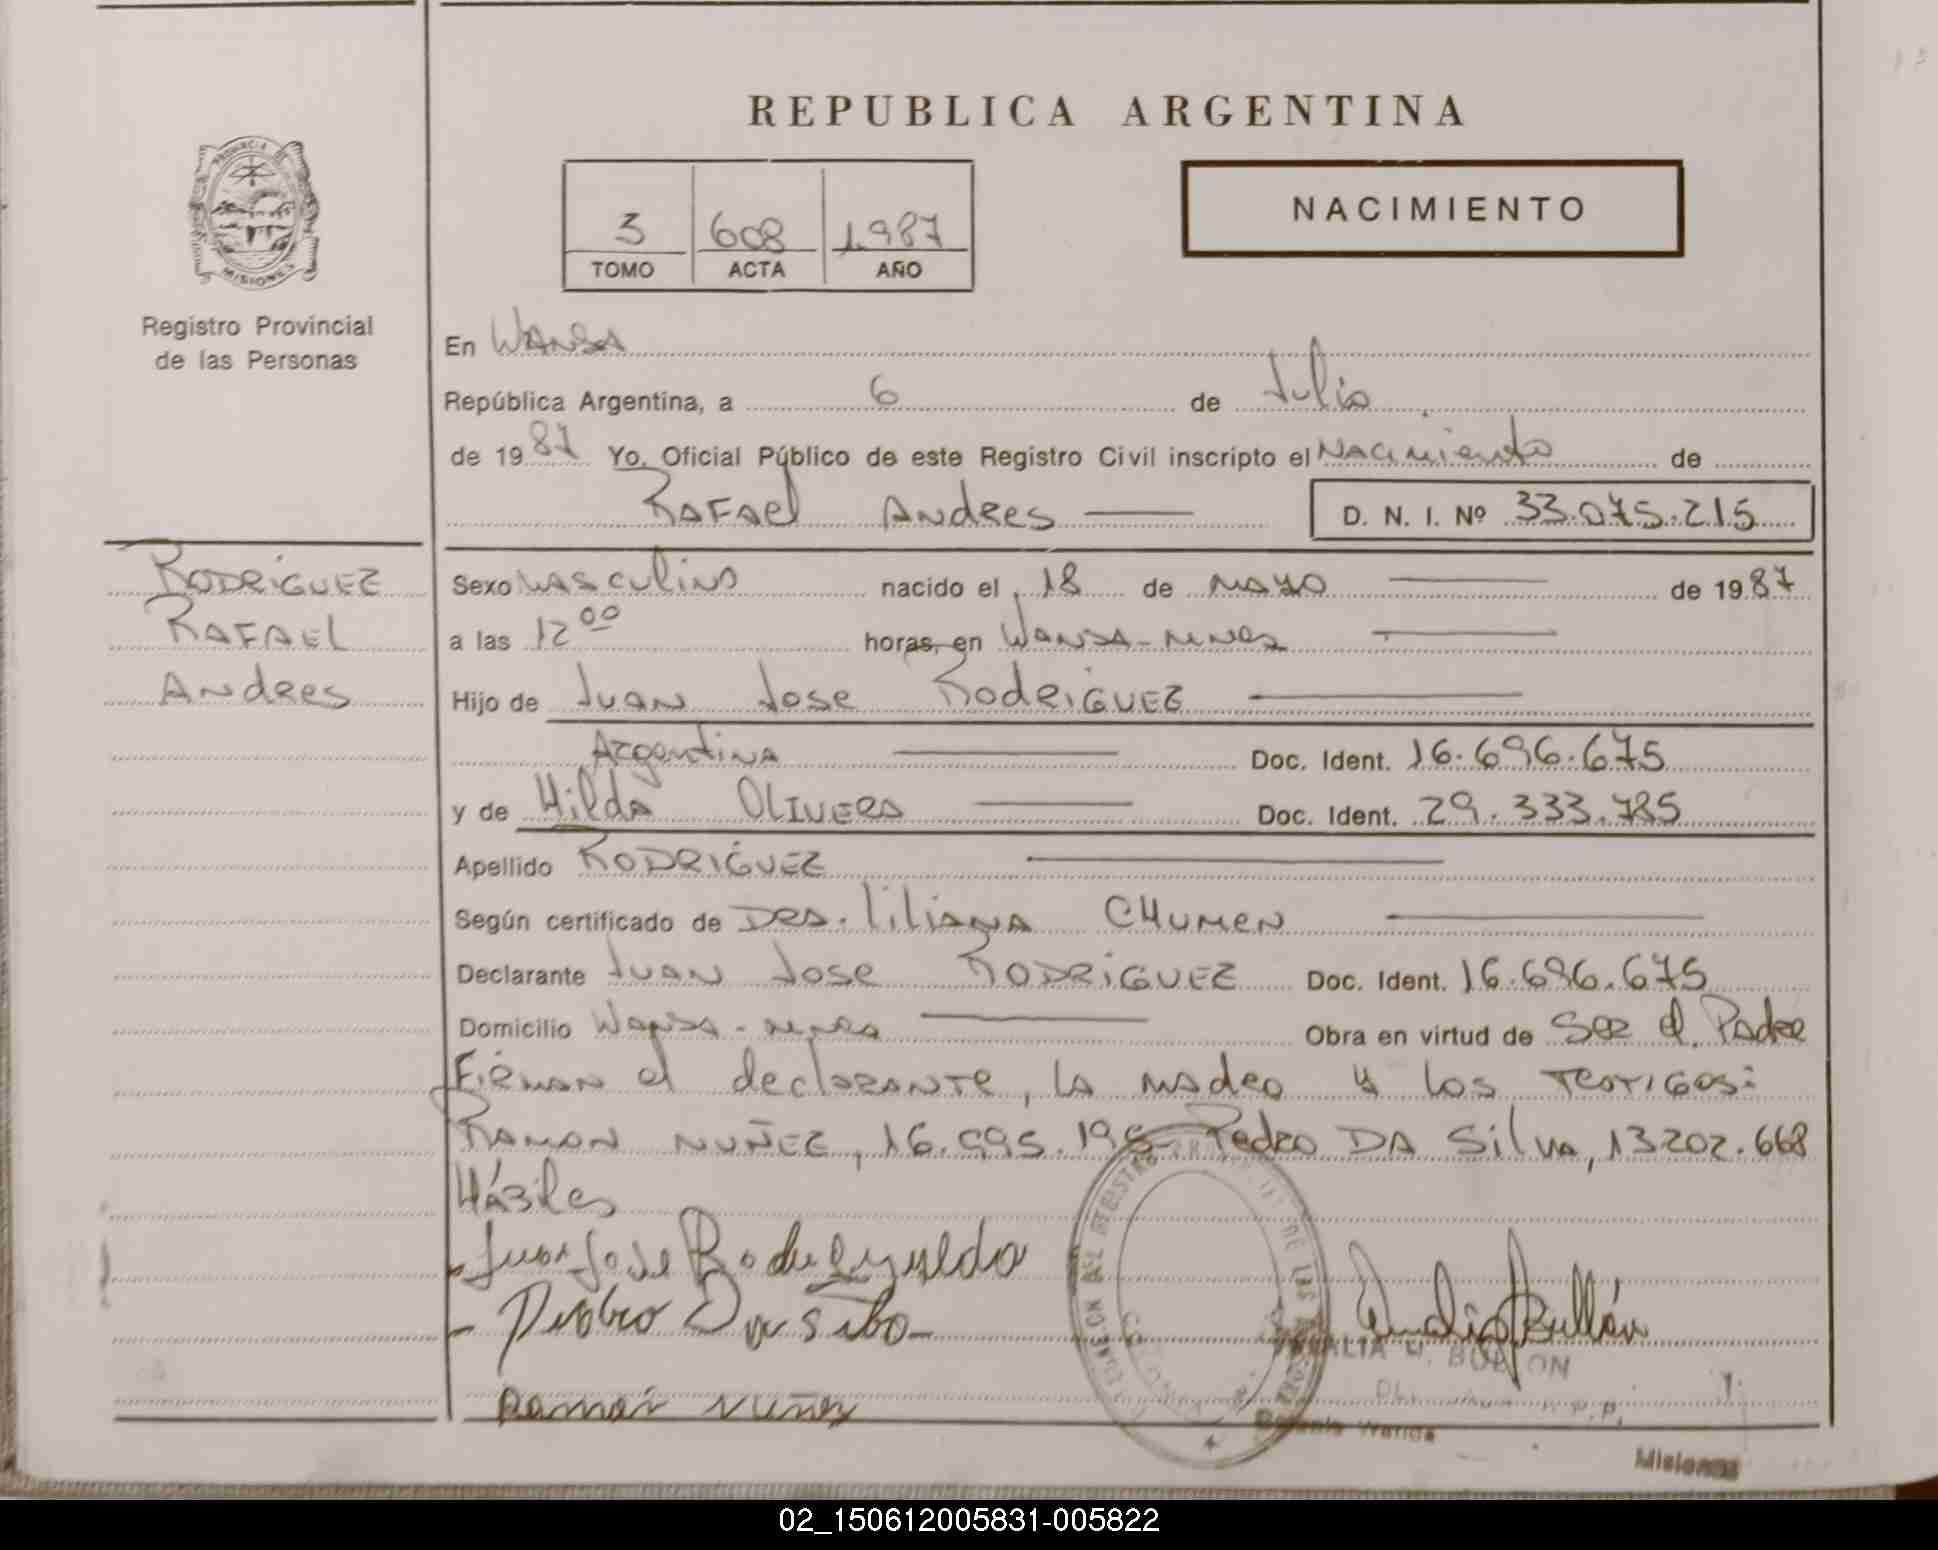 REPUBLICA ARGENTINA
PROVINCIA DE
MISIONES
Registro Provincial
de las Personas
NACIMIENTO
3 608 1.987
TOMO ACTA AÑO
En WANDA
República Argentina, a 6 de Julio
de 19 87 Yo, Oficial Público de este Registro Civil inscripto el Nacimiento de
RAFAel ANdRes D. N. I. Nº 33.075.215
RODRiGUEZ
RAFAEL
ANdRes
Sexo MASculino nacido el 18 de MAYO de 19 87
a las 12 00 horas, en WANDA-
Hijo de JUAN Jose RodRiGUEZ
ArgentinA Doc. Ident. 16.696.675
y de HildA OLIVERA Doc. Ident. 29.333.785
Apellido RODRiGUEZ
Según certificado de DRA. liliANA CHUMEN
Declarante JUAN Jose RODRiGUEZ Doc. Ident. 16.696.675
Domicilio WANDA - Obra en virtud de SeR el Padre
FiRMAN el declARANTe, LA MAdRe y los TesTiGos:
RAMON NUÑEZ, 16.995.195- PedRo DA SilvA, 13202.668
HÁBiles
Juan Jose Rod
- Pedro Da silva-
Ramón Nuñez
Misiones
02_150612005831-005822